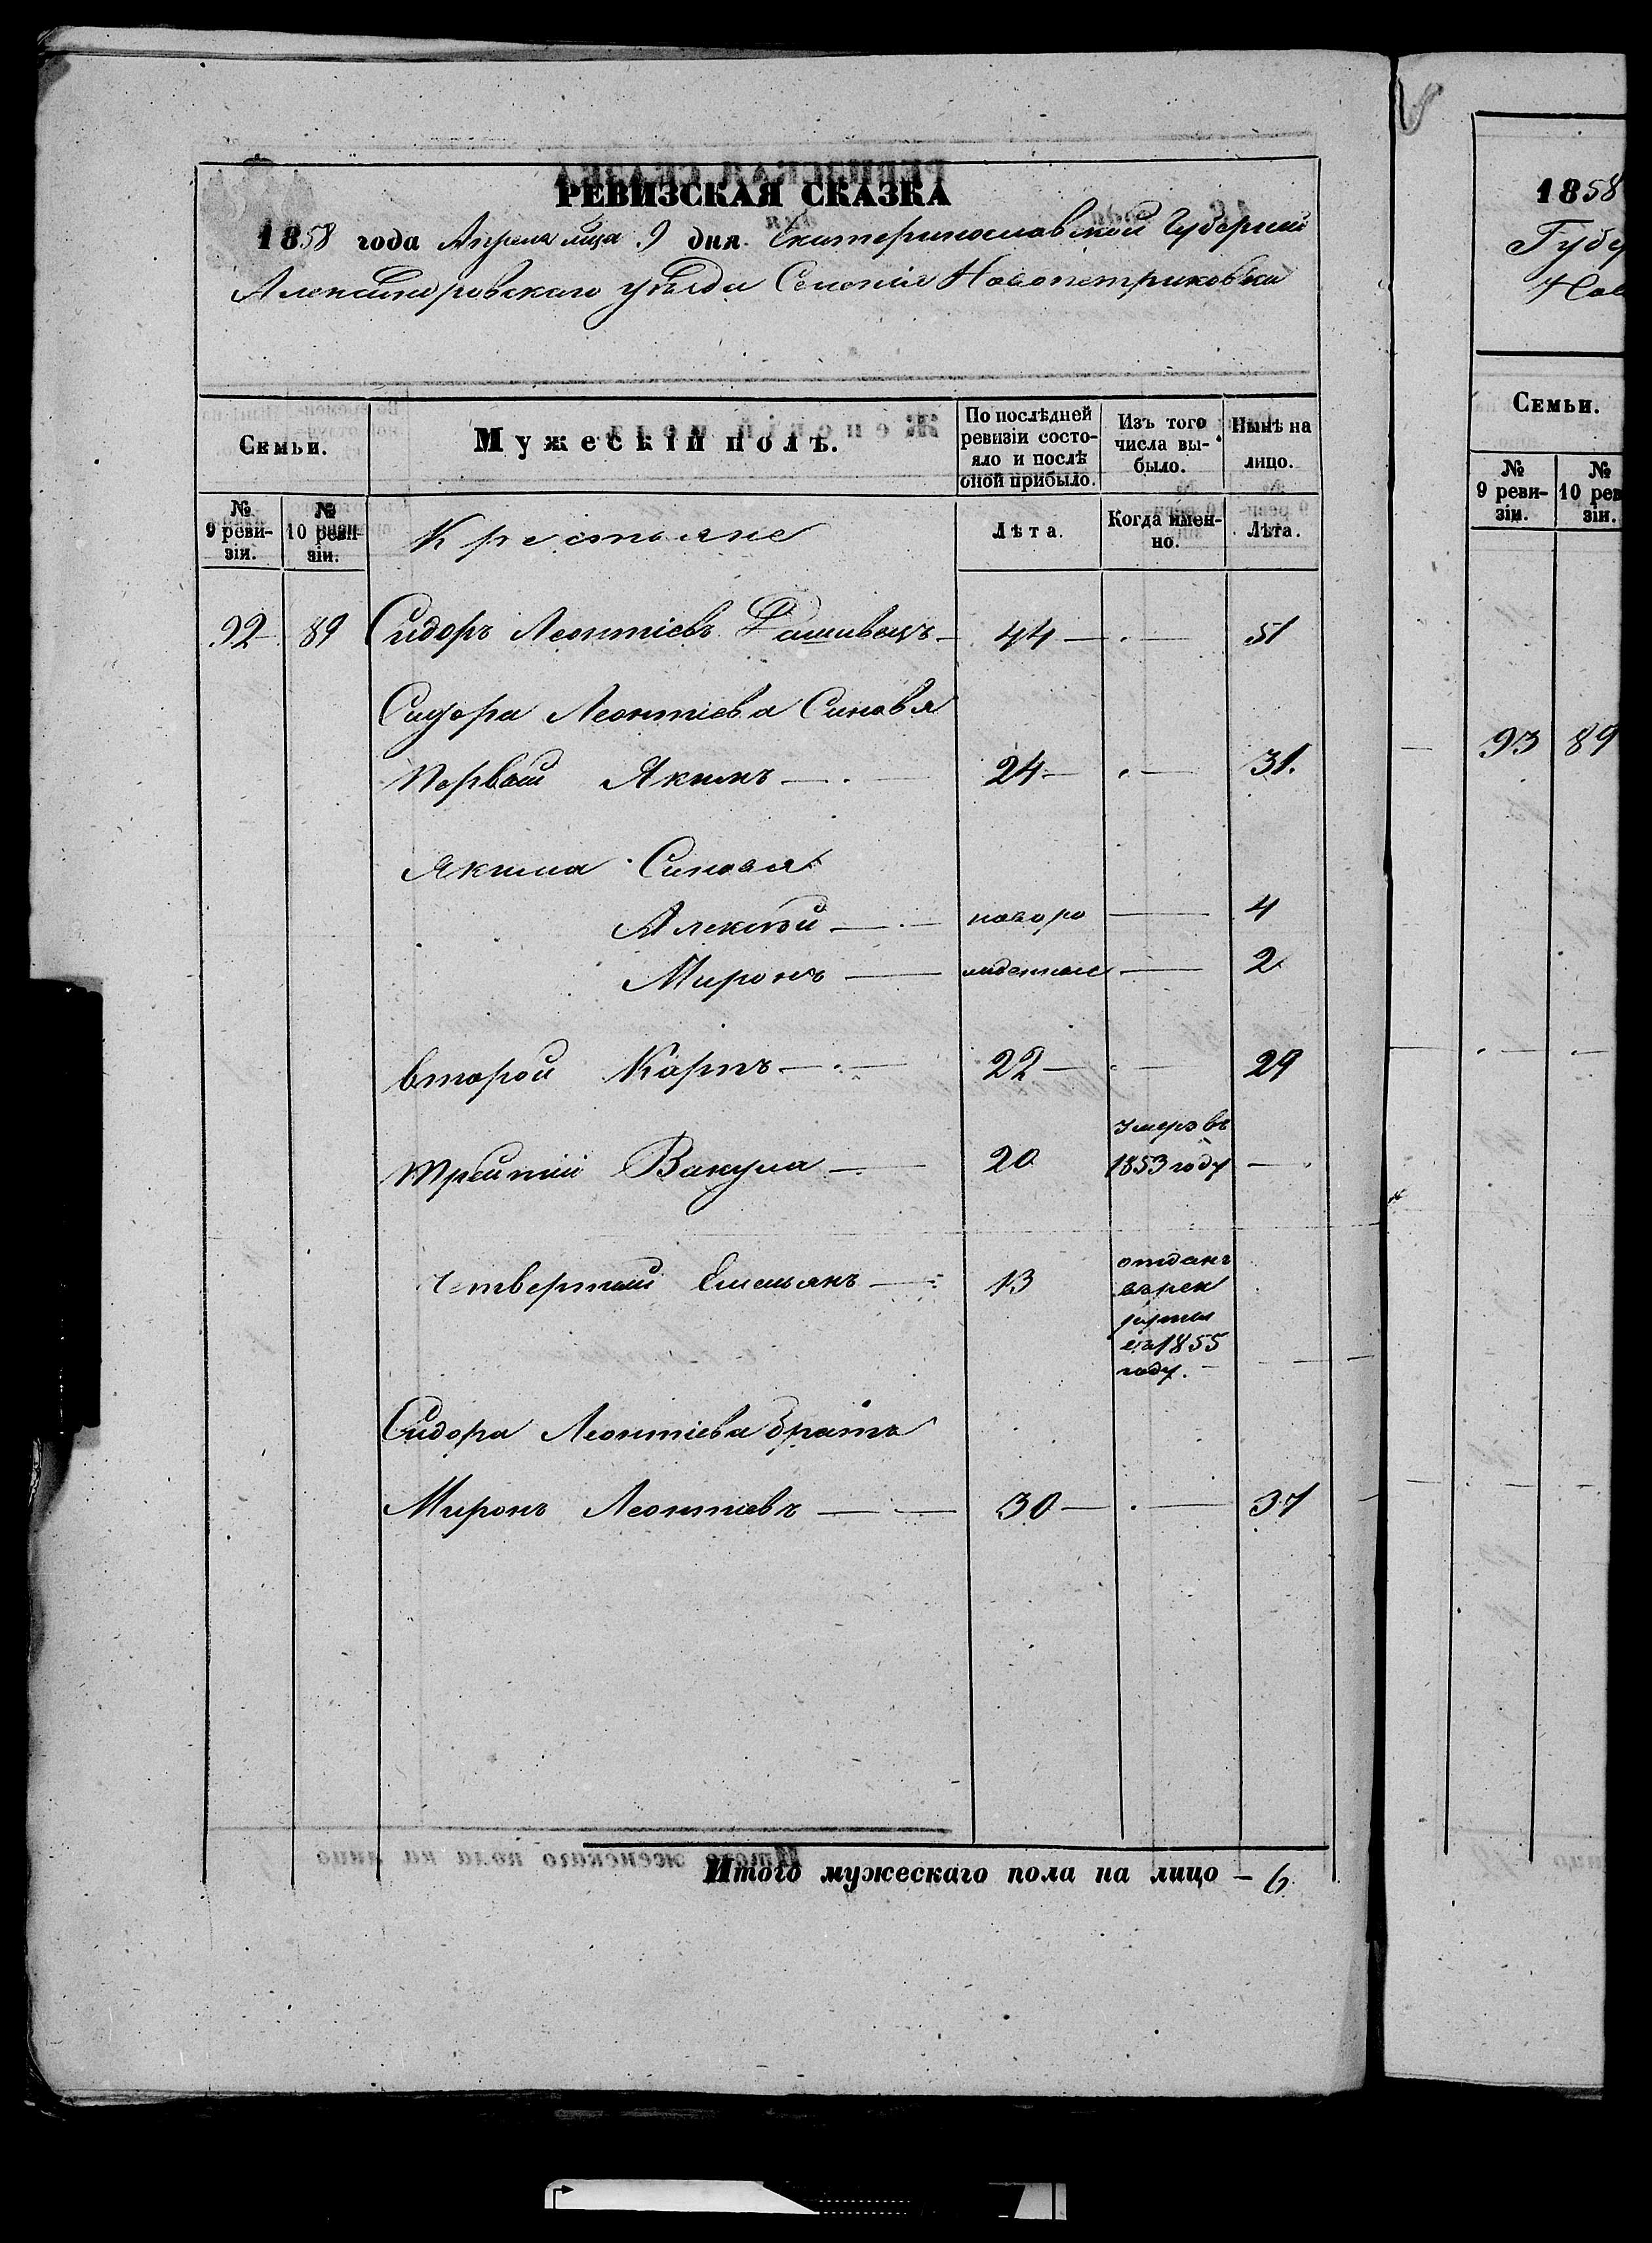 РЕВИЗСКАЯ СКАЗКА
1858 года Апреля мца 9 дня. Екатеринославской Губернии
Александровскаго уѣзда Селенія Новопетриковка
Семьи.
Мужескій полъ.
По послѣдней ревизіи состояло и послѣ оной прибыло.
Изъ того числа выбыло.
Нынѣ на лицо.
№ 9 ревизіи.
№ 10 ревизіи.
Крестьяне
Лѣта.
Когда именно.
Лѣта.
92 89 Сидоръ Леонтіевъ 44 — . — 51
Сидора Леонтіева Синовя
Первый Якимъ — . — 24 — . — 31.
Якима Синовя
Алексѣй — . — новоро — 4
Миронъ — жденные — 2
второй Карпъ — . — 22 — . — 29
третій Вакула — 20 умеръ въ 1853 году —
Четвертый Емельянъ — 13 отданъ
в рек
руты
въ 1855
году. —
Сидора Леонтіева братъ
Миронъ Леонтіевъ — — 30 — . — 37
Итого мужескаго пола на лицо — 6
1858
Губе
Нов
Семьи.
№ 9 ревизіи.
№ 10 рев
зіи.
93 89